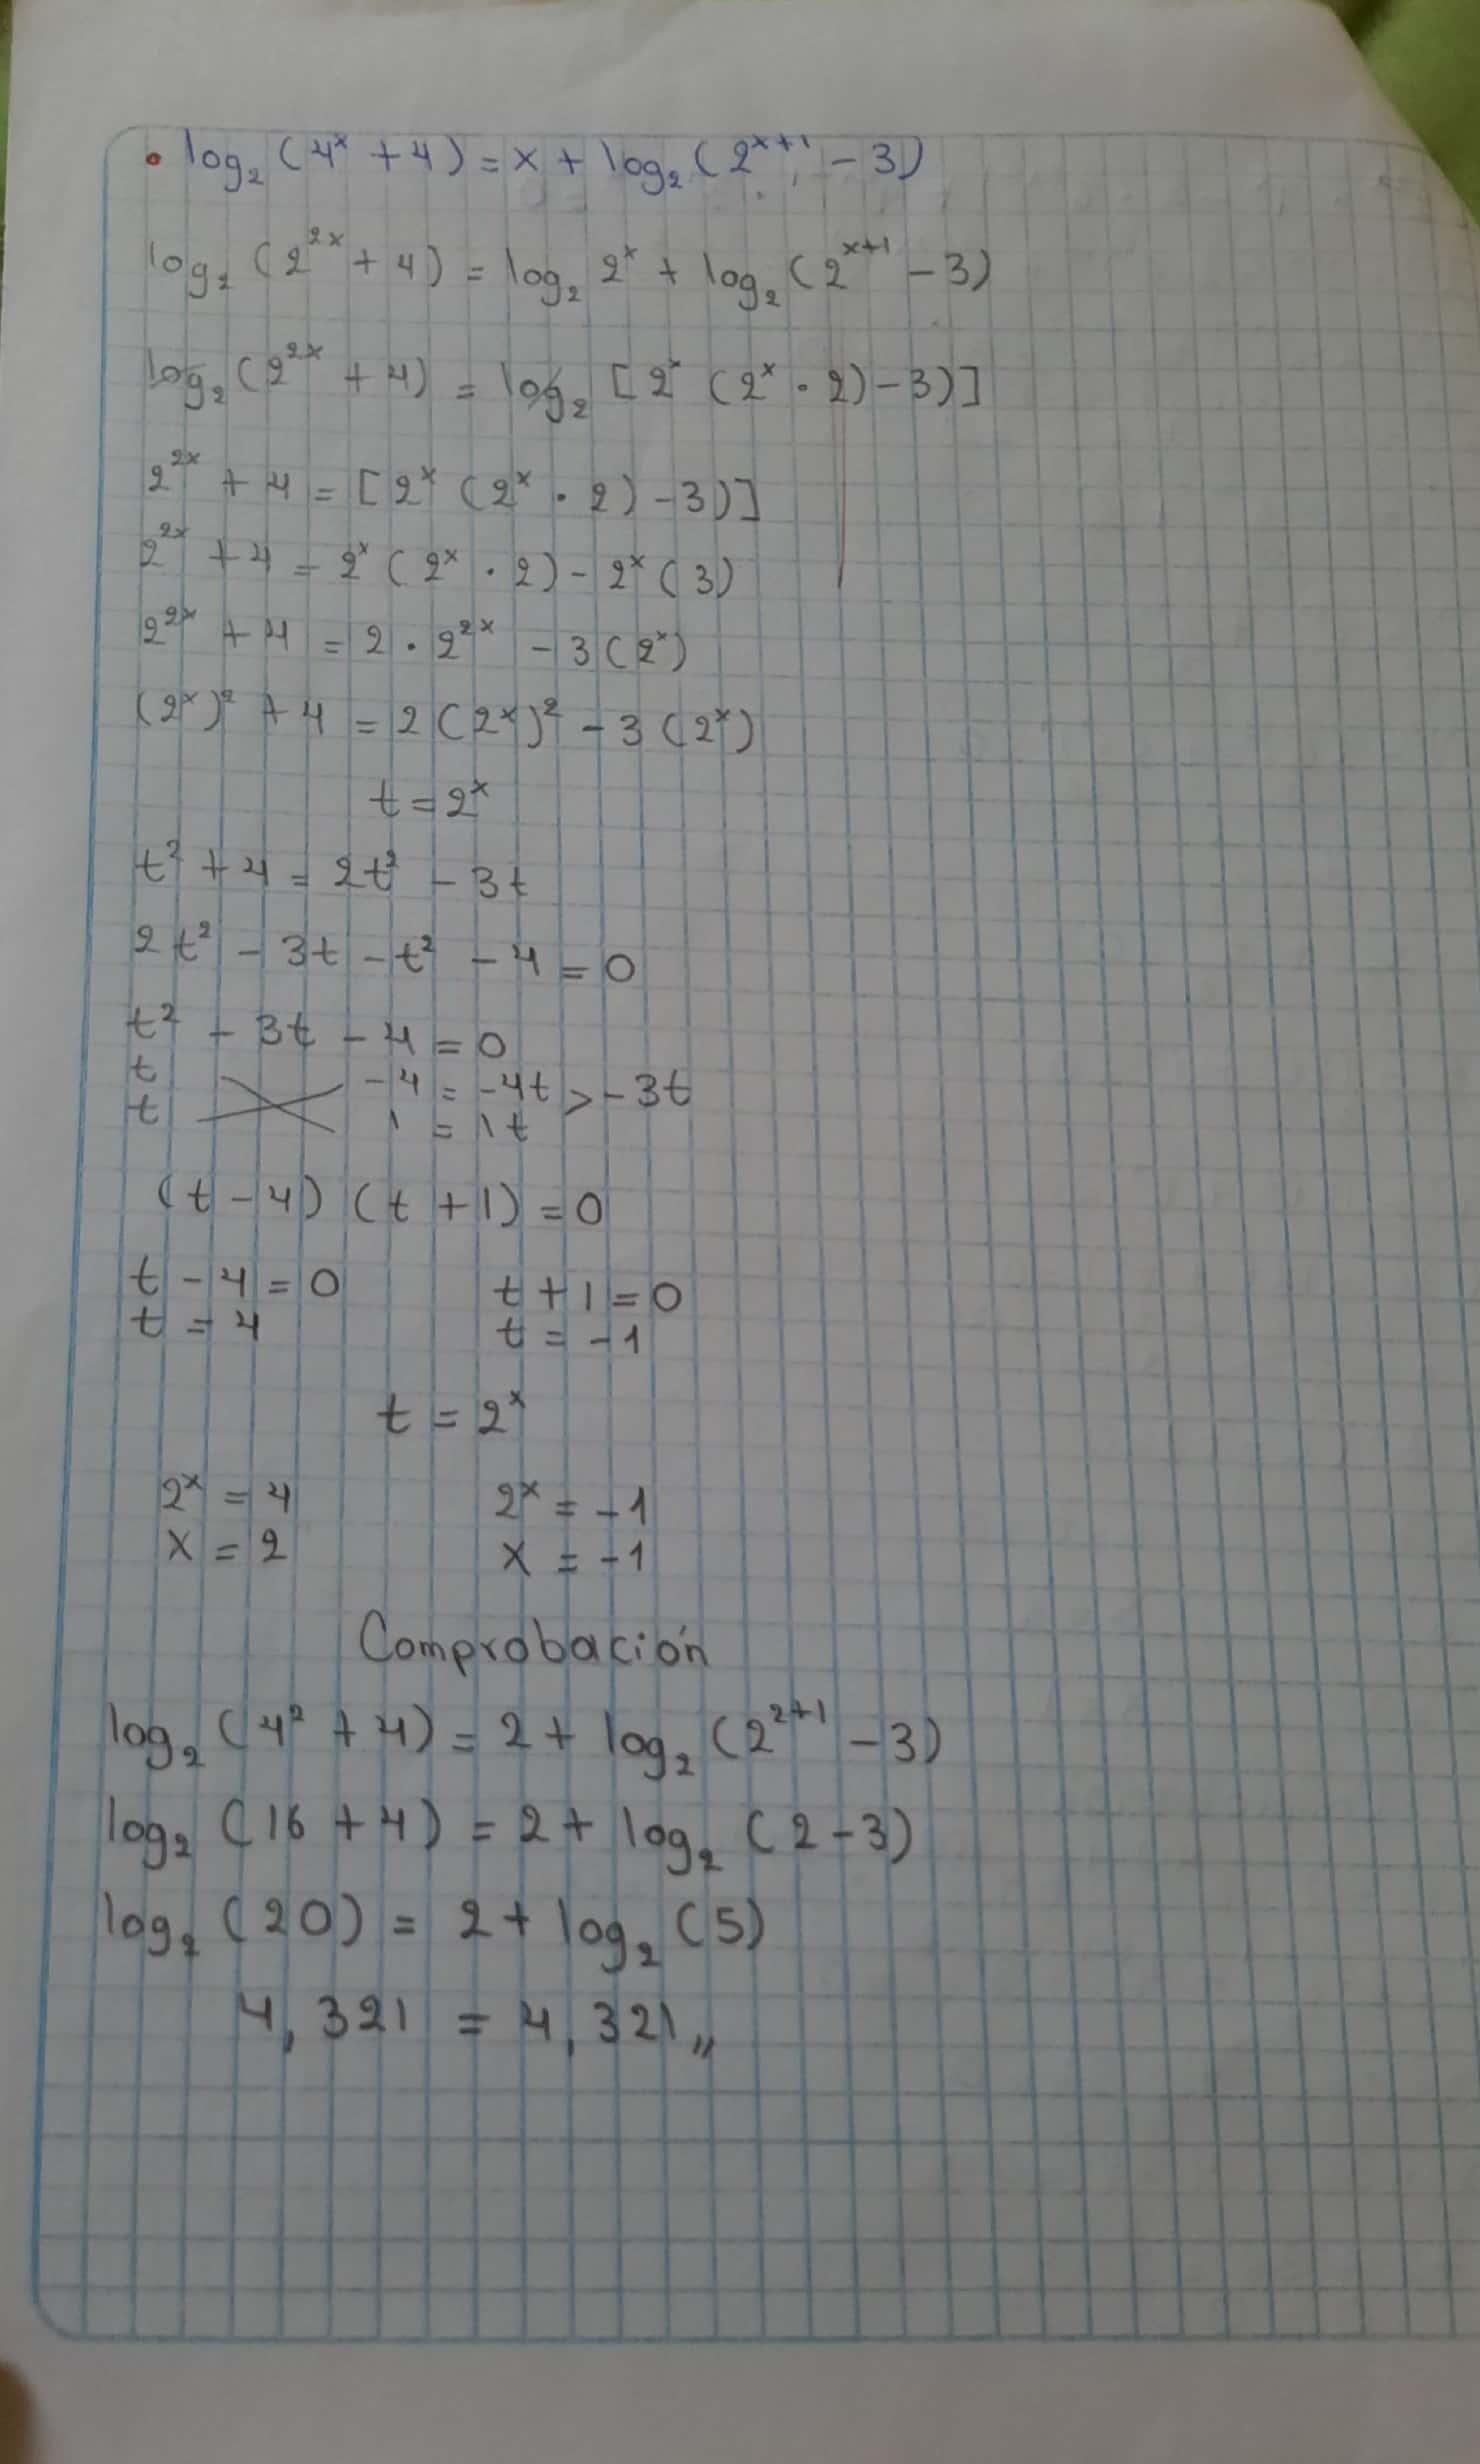 • log₂ (4ˣ + 4) = x + log₂ (2ˣ⁺¹ - 3)
log₂ (2²ˣ + 4) = log₂ 2ˣ + log₂ (2ˣ⁺¹ - 3)
log₂ (2²ˣ + 4) = log₂ [2ˣ (2ˣ · 2) - 3)]
2²ˣ + 4 = [2ˣ (2ˣ · 2) - 3)]
2²ˣ + 4 = 2ˣ (2ˣ · 2) - 2ˣ (3)
2²ˣ + 4 = 2 · 2²ˣ - 3 (2ˣ)
(2ˣ)² + 4 = 2 (2ˣ)² - 3 (2ˣ)
t = 2ˣ
t² + 4 = 2t² - 3t
2t² - 3t - t² - 4 = 0
t² - 3t - 4 = 0
t -4 = -4t > -3t
t 1 = 1t
(t - 4) (t + 1) = 0
t - 4 = 0 t + 1 = 0
t = 4 t = -1
t = 2ˣ
2ˣ = 4 2ˣ = -1
x = 2 x = -1
Comprobación
log₂ (4² + 4) = 2 + log₂ (2²⁺¹ - 3)
log₂ (16 + 4) = 2 + log₂ (2 - 3)
log₂ (20) = 2 + log₂ (5)
4,321 = 4,321,,